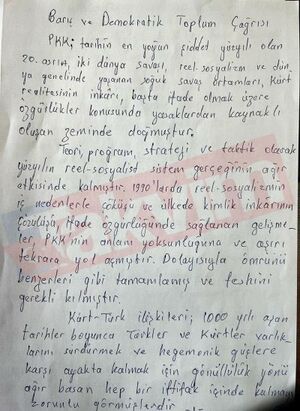 Barış ve Demokratik Toplum Çağrısı
PKK; tarihin en yoğun şiddet yüzyılı olan
20. asrın, iki dünya savaşı, reel-sosyalizm ve dün-
ya genelinde yaşanan soğuk savaş ortamları, Kürt
realitesinin inkârı, başta ifade olmak üzere
özgürlükler konusunda yasaklardan kaynaklı
oluşan zeminde doğmuştur.
Teori, program, strateji ve taktik olarak
yüzyılın reel-sosyalist sistem gerçeğinin ağır
etkisinde kalmıştır. 1990'larda reel-sosyalizmin
iç nedenlerle çöküşü ve ülkede kimlik inkârının
çözülüşü, ifade özgürlüğünde sağlanan gelişme-
ler, PKK'nin anlam yoksunluğuna ve aşırı
tekrara yol açmıştır. Dolayısıyla ömrünü
benzerleri gibi tamamlamış ve feshini
gerekli kılmıştır.
Kürt-Türk ilişkileri; 1000 yılı aşan
tarihler boyunca Türkler ve Kürtler varlık-
larını sürdürmek ve hegemonik güçlere
karşı ayakta kalmak için gönüllülük yönü
ağır basan hep bir ittifak içinde kalmayı
zorunlu görmüşlerdir.